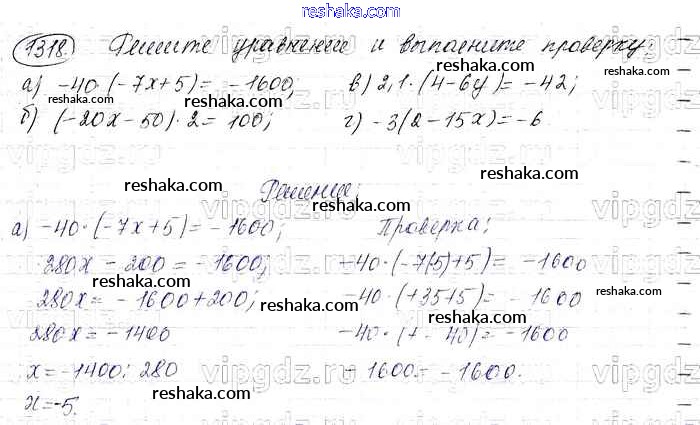 reshaka.com
1318. Решите уравнение и выполните проверку:
а) -40·(-7х+5)= -1600; в) 2,1·(4-6у)= -42;
б) (-20х-50)·2=100; г) -3(2-15х)=-6.
reshaka.com
reshaka.com
reshaka.com
Решение:
reshaka.com
а) -40·(-7х+5)= -1600; Проверка:
reshaka.com
280х - 200 = -1600; -40·(-7(5)+5)= -1600
reshaka.com
280х= -1600+200; -40·(+35+5)= -1600
reshaka.com
reshaka.com
280х=-1400 -40·(+-40)=-1600
reshaka.com
х=-1400:280 -1600=-1600.
reshaka.com
reshaka.com
х=-5.
reshaka.com
vipgdz
vipgdz
vipgdz
vipgdz